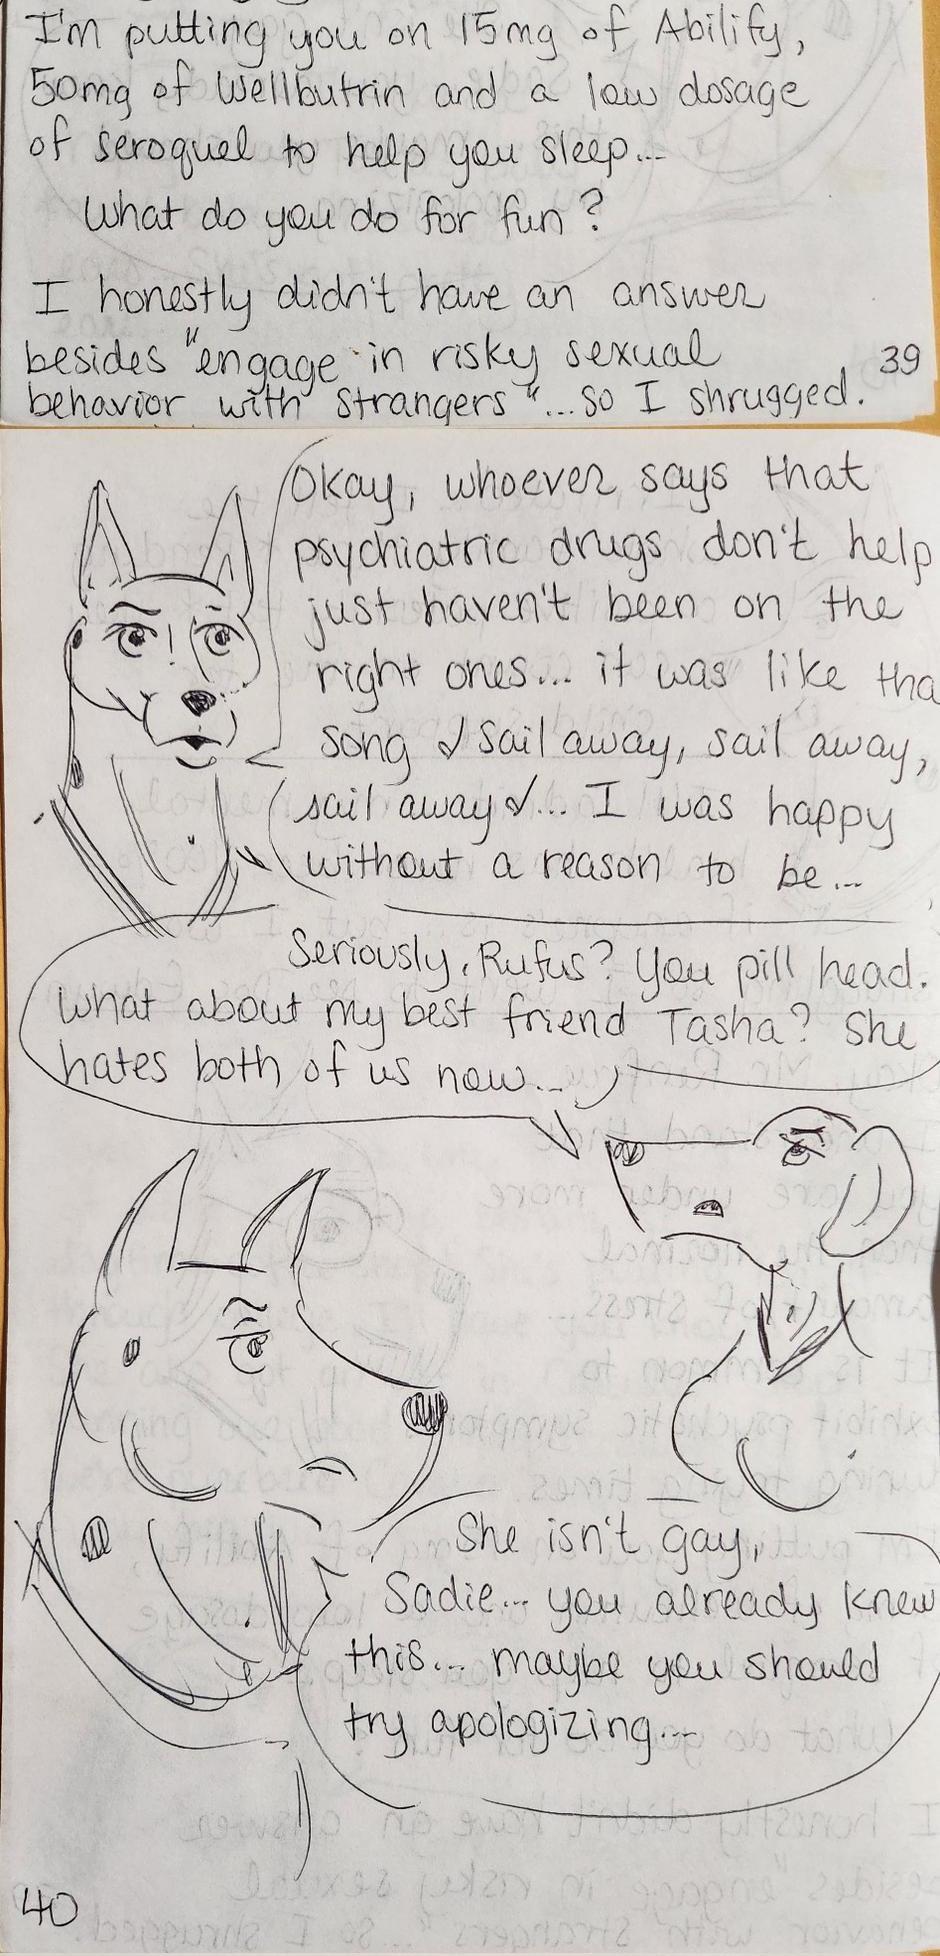 I'm putting you on 15mg of Abilify,
50mg of Wellbutrin and a low dosage
of seroquel to help you sleep...
What do you do for fun?
I honestly didn't have an answer
besides "engage in risky sexual
behavior with strangers"...so I shrugged.
39
Okay, whoever says that
psychiatric drugs don't help
just haven't been on the
right ones... it was like tha
song ♪ Sail away, sail away,
sail away ♪... I was happy
without a reason to be...
Seriously, Rufus? You pill head.
What about my best friend Tasha? She
hates both of us now...
She isn't gay,
Sadie... you already knew
this... maybe you should
try apologizing...
40